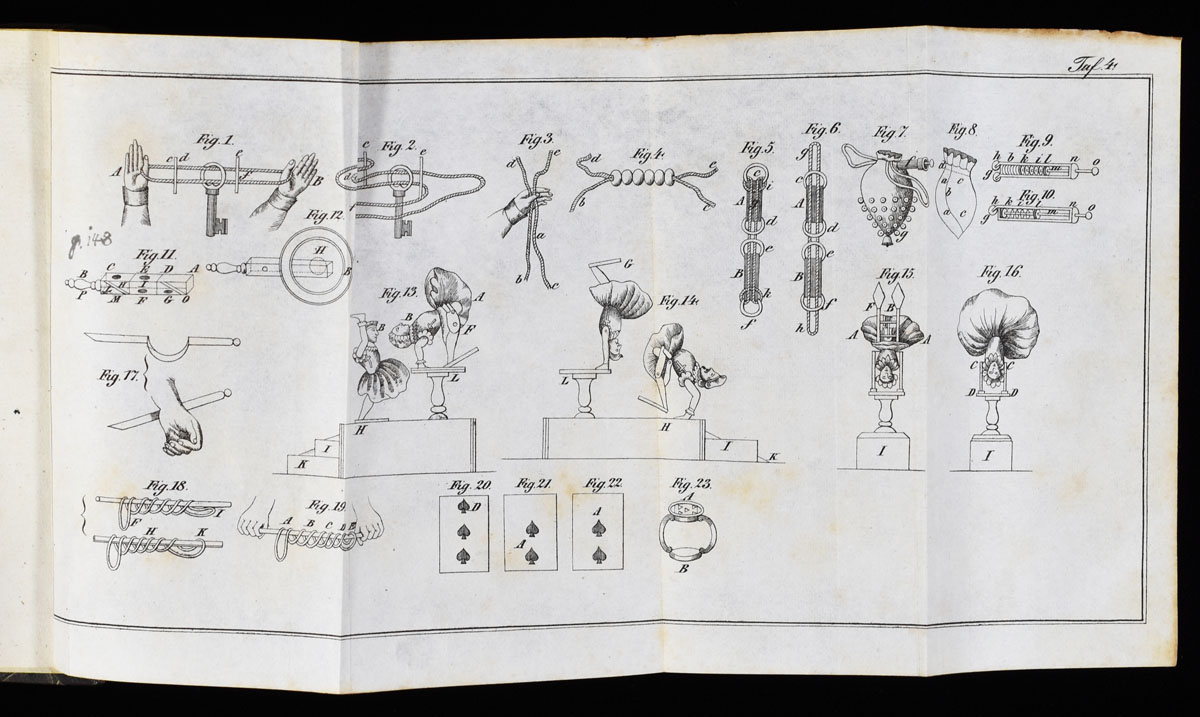 Taf. 4.
Fig. 1.
c d e
A f B
Fig. 2.
c e
f
Fig. 3.
d e
a
b c
Fig. 4.
d e
b c
Fig. 5.
c
i
A g
d
e
B
k
f
Fig. 6.
g
c
A
d
e
B
f
h
Fig. 7.
i
g
Fig. 8.
d
a c
b
a c
Fig. 9.
h b k i l n
g m o
Fig. 10.
h k i l n
g m o
p. 148
Fig. 11.
B C E D A
L H I
P M F G O
Fig. 12.
H
B
Fig. 13.
B B A
F
L
H
I
K
G
Fig. 14.
L
H
I
K
Fig. 15.
F B
A A
I
Fig. 16.
C C
D D
I
Fig. 17.
Fig. 18.
F I
H K
Fig. 19.
A B C D E
Fig. 20.
D
Fig. 21.
A
Fig. 22.
A
Fig. 23.
A
B